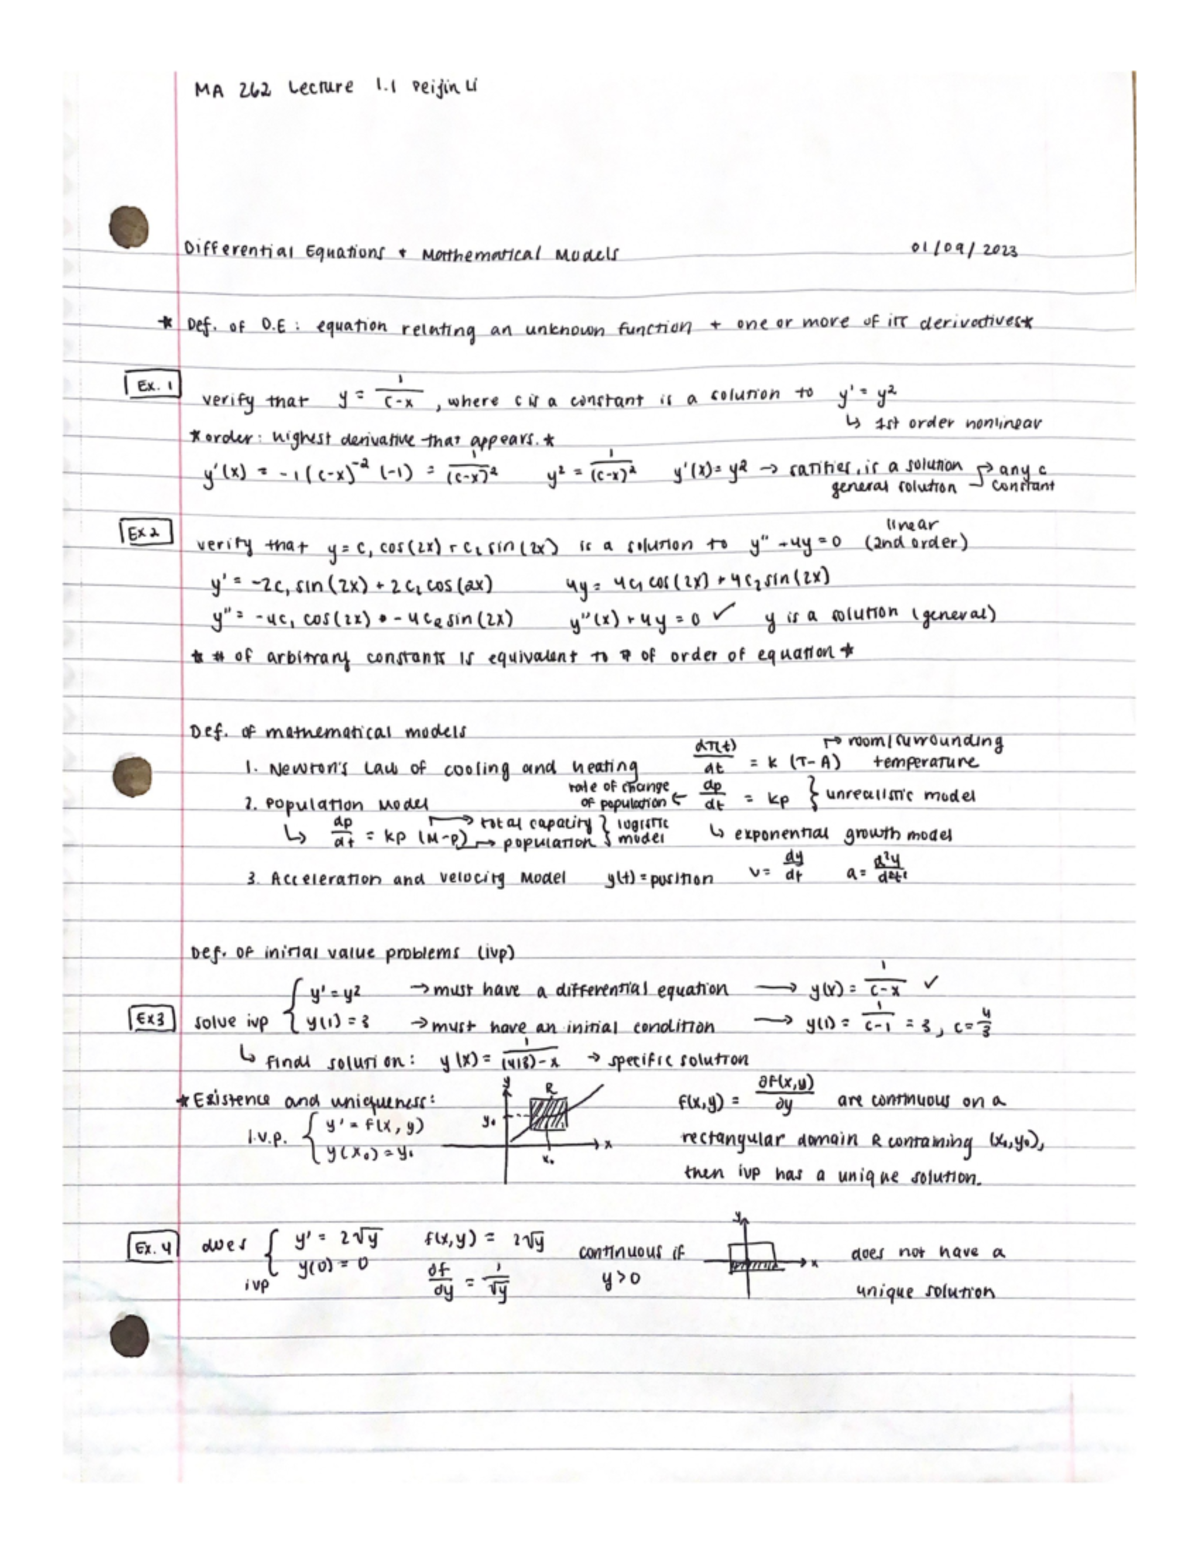 MA 262 Lecture 1.1 Peijin Li
Differential Equations + Mathematical Models 01/09/2023
* Def. of D.E: equation relating an unknown function + one or more of its derivatives*
Ex. 1 verify that y = 1/(c-x), where c is a constant is a solution to y' = y²
↳ 1st order nonlinear
*order: highest derivative that appears.*
y'(x) = -1(c-x)⁻² (-1) = 1/(c-x)² y² = 1/(c-x)² y'(x) = y² → satisfies, is a solution → any c
general solution constant
linear
Ex 2 verify that y = c₁ cos(2x) + c₂ sin(2x) is a solution to y" + 4y = 0 (2nd order)
y' = -2c₁ sin(2x) + 2c₂ cos(2x) 4y = 4c₁ cos(2x) + 4c₂ sin(2x)
y" = -4c₁ cos(2x) • - 4c₂ sin(2x) y"(x) + 4y = 0 ✓ y is a solution (general)
* # of arbitrary constants is equivalent to # of order of equation *
Def. of mathematical models
1. Newton's Law of cooling and heating dT(t)/dt = k (T-A) → room/surrounding temperature
2. Population Model rate of change of population ← dp/dt = kp } unrealistic model
↳ dp/dt = kp (M-p) → total capacity → population } logistic model ↳ exponential growth model
3. Acceleration and velocity Model y(t) = position v = dy/dt a = d²y/dt²
Def. of initial value problems (ivp)
{ y' = y² → must have a differential equation → y(x) = 1/(c-x) ✓
Ex3 solve ivp { y(1) = 3 → must have an initial condition → y(1) = 1/(c-1) = 3, c = 4/3
↳ final solution: y(x) = 1/((4/3)-x) → specific solution
* Existence and uniqueness: y R f(x,y) = ∂f(x,y)/∂y are continuous on a
i.v.p. { y' = f(x,y) y₀ x
{ y(x₀) = y₀ x₀ rectangular domain R containing (x₀,y₀),
then ivp has a unique solution.
Ex. 4 does { y' = 2√y f(x,y) = 2√y continuous if y x does not have a
ivp { y(0) = 0 ∂f/∂y = 1/√y y>0 unique solution